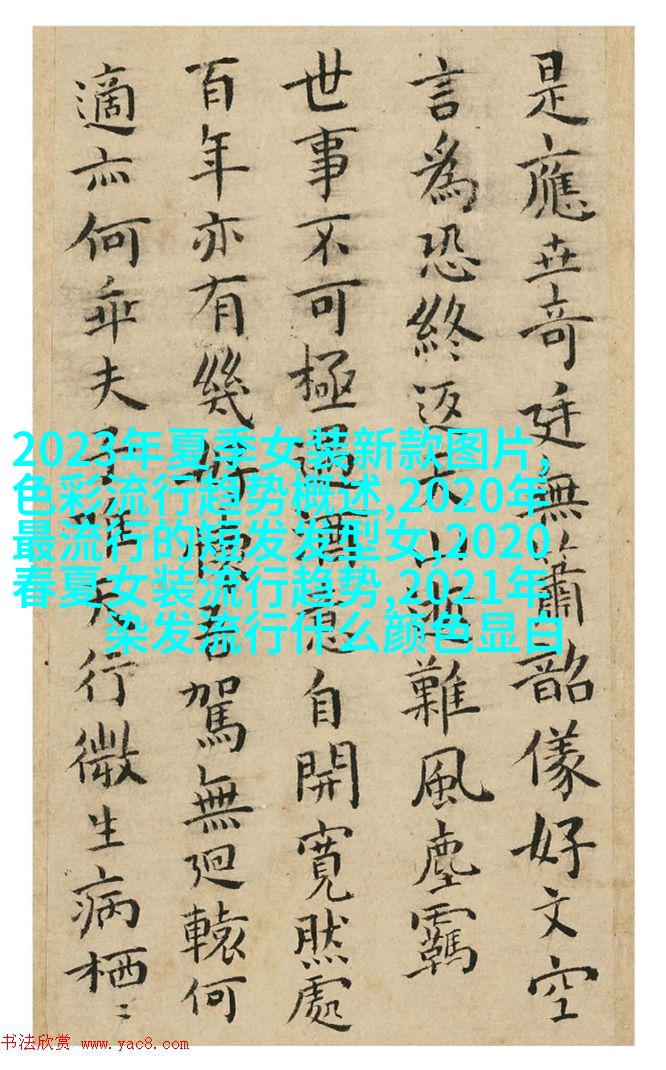 是應世奇廷無簫韶儀好文空
言爲恐終返山難風塵羈
世事不可極遇酒自開寬然處
百年亦有幾懷吾駕無迴轅何
適亦何乖夫子行微生病栖〻
2023年夏季女装新款图片,
色彩流行趋势概述,2020年
最流行的短发发型女,2020
春夏女装流行趋势,2021年
染发流行什么颜色显白
书法欣赏 www.yac8.com